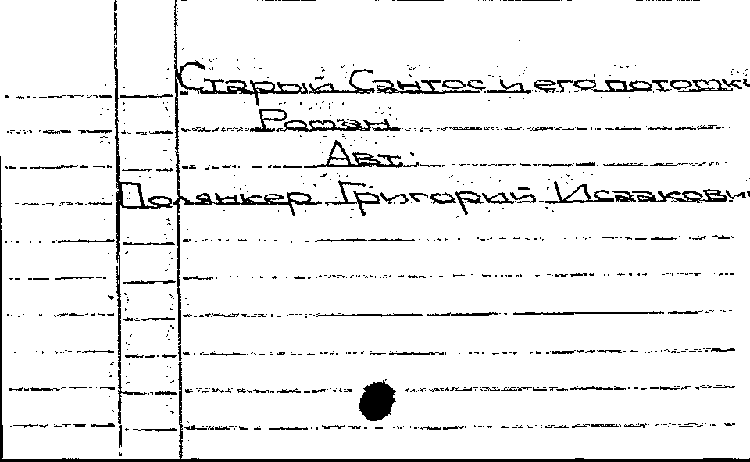 Старый Сантос и его потомки
Роман.
Авт.:
Полянкер Григорий Исаакови